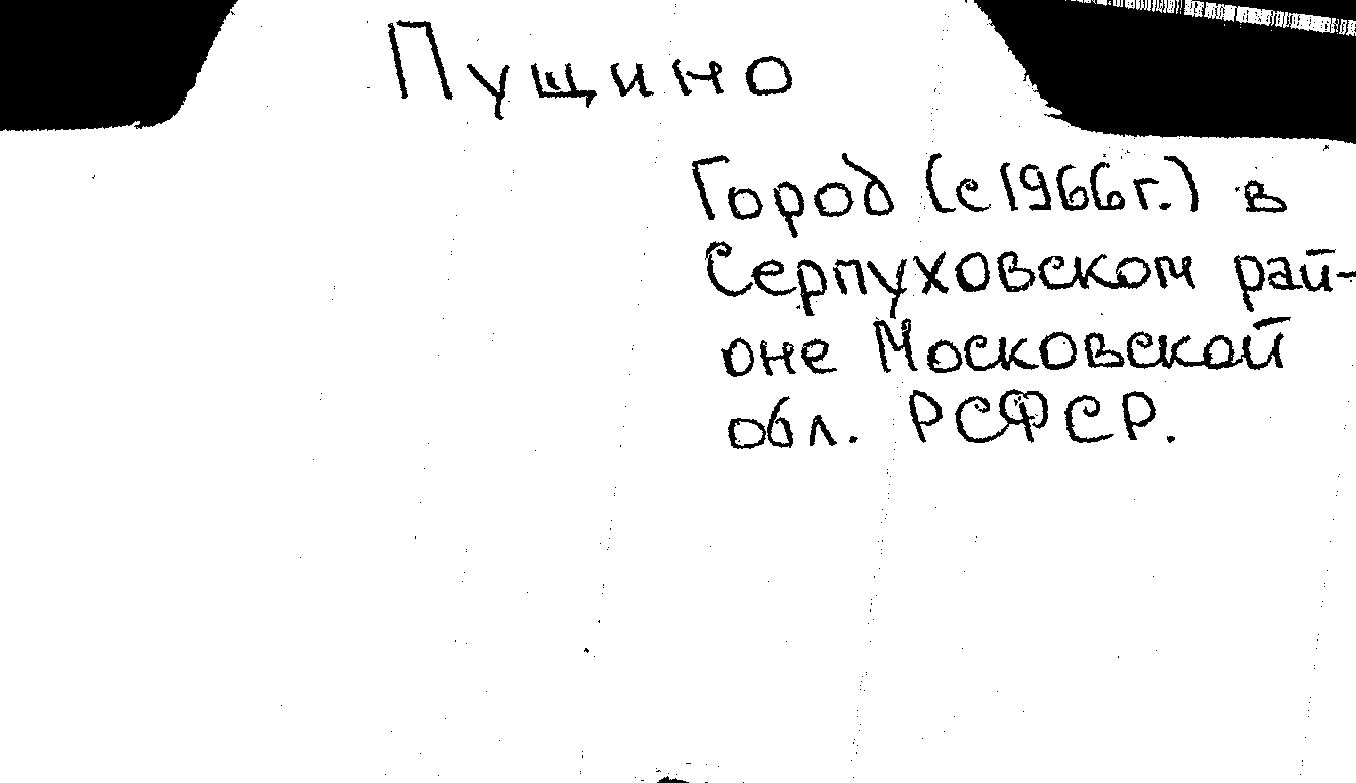 Пущино
Город (с 1966 г.) в
Серпуховском рай-
оне Московской
обл. РСФСР.